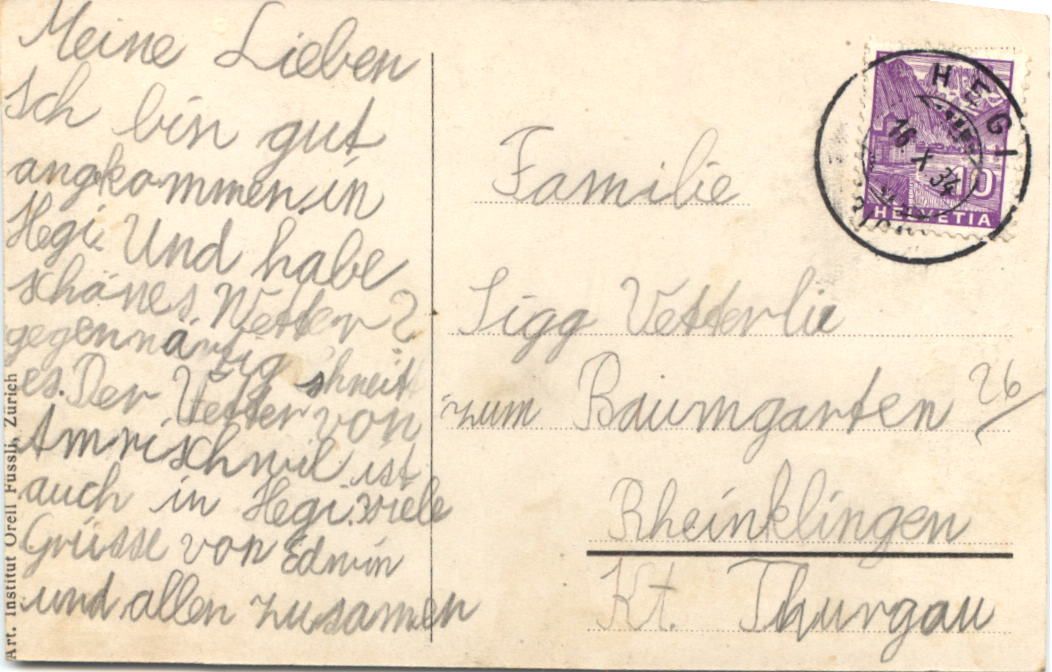 Meine Lieben
Ich bin gut
angkommen in
Hegi. Und habe
schönes Wetter?
gegenwärtig schneit
es. Der Vetter von
Amrischwil ist
auch in Hegi. viele
Grüsse von Edwin
und allen zusamen
Art. Institut Orell Füssli, Zürich
HEGI
16 X 34
10
HELVETIA
Familie
Sigg Vetterlie
zum Baumgarten 26/
Rheinklingen
Kt. Thurgau